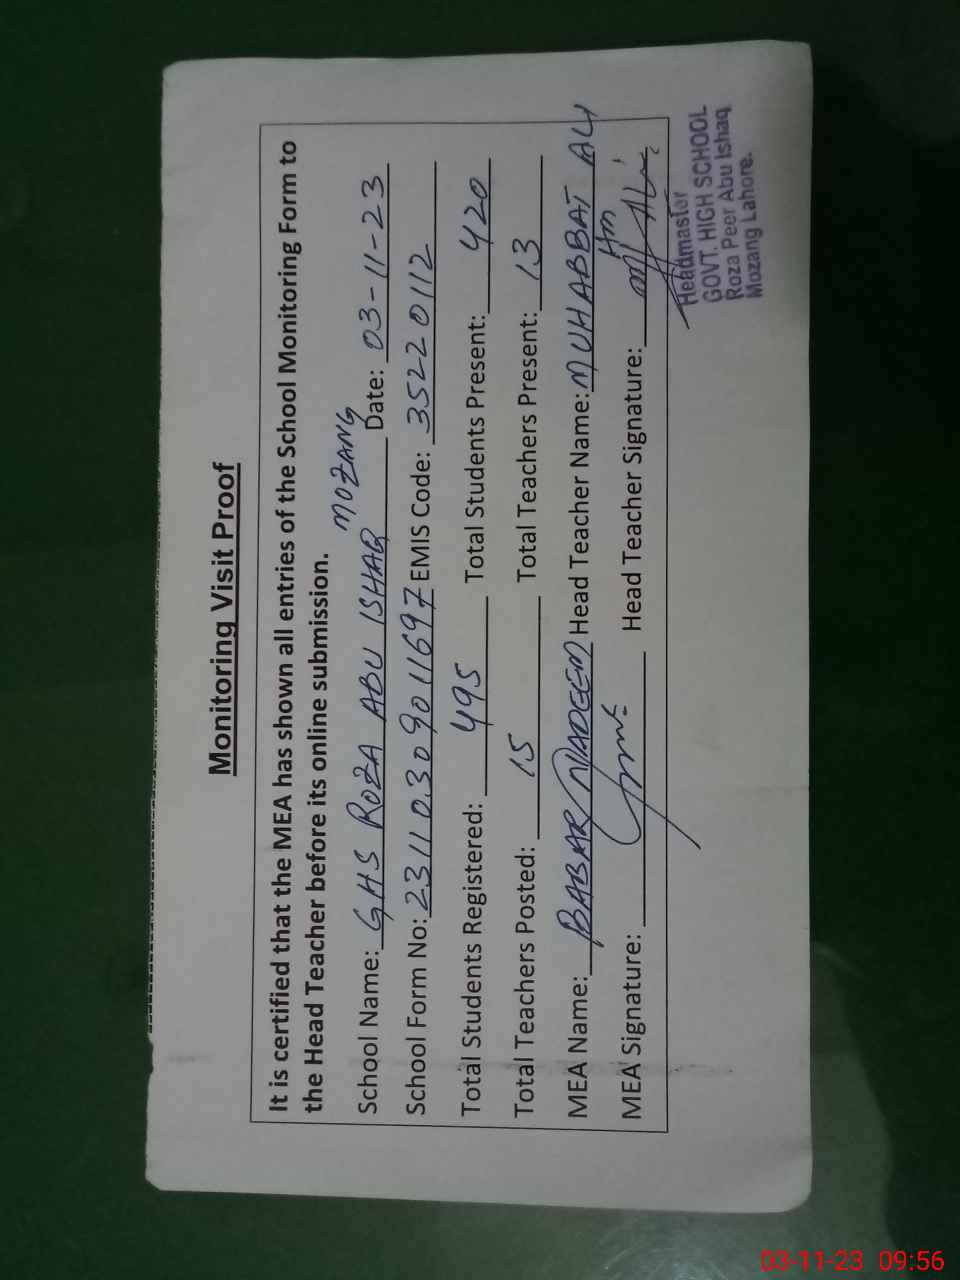 Monitoring Visit Proof
It is certified that the MEA has shown all entries of the School Monitoring Form to
the Head Teacher before its online submission.
MOZANG
School Name: GHS ROZA ABU ISHAQ Date: 03-11-23
School Form No: 23110309011697 EMIS Code: 35220112
Total Students Registered: 495 Total Students Present: 420
Total Teachers Posted: 15 Total Teachers Present: 13
MEA Name: BABAR NADEEM Head Teacher Name: MUHABBAT ALI
MEA Signature: Head Teacher Signature:
Headmaster
GOVT. HIGH SCHOOL
Roza Peer Abu Ishaq
Mozang Lahore.
03-11-23 09:56